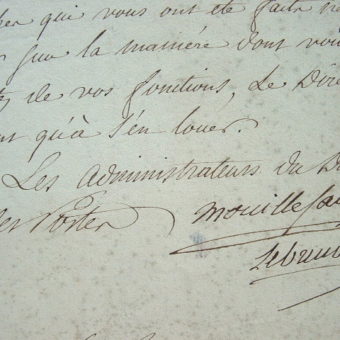 qui vous ont été faits
que la manière dont vous
de vos fonctions, Le Dir
qu'à s'en louer.
Les administrateurs du D
Postes
mouillefa
Lebrun